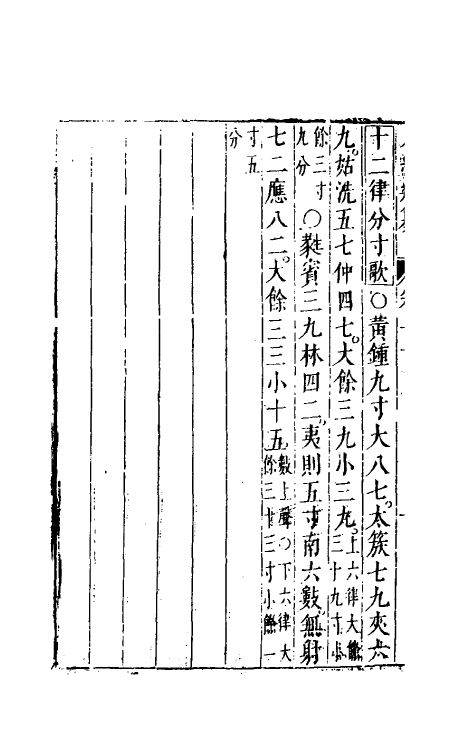 十二律分寸歌〇黄鍾九寸大八七。太簇七九夾六
九。姑洗五七仲四七。大餘三九小三九。上六律大餘三十九寸小
餘三寸九分〇蕤賓三九林四二。夷則五寸南六數。無射
七二應八二。大餘三三小十五。數上聲〇下六律大餘三十三寸小餘一
寸五分